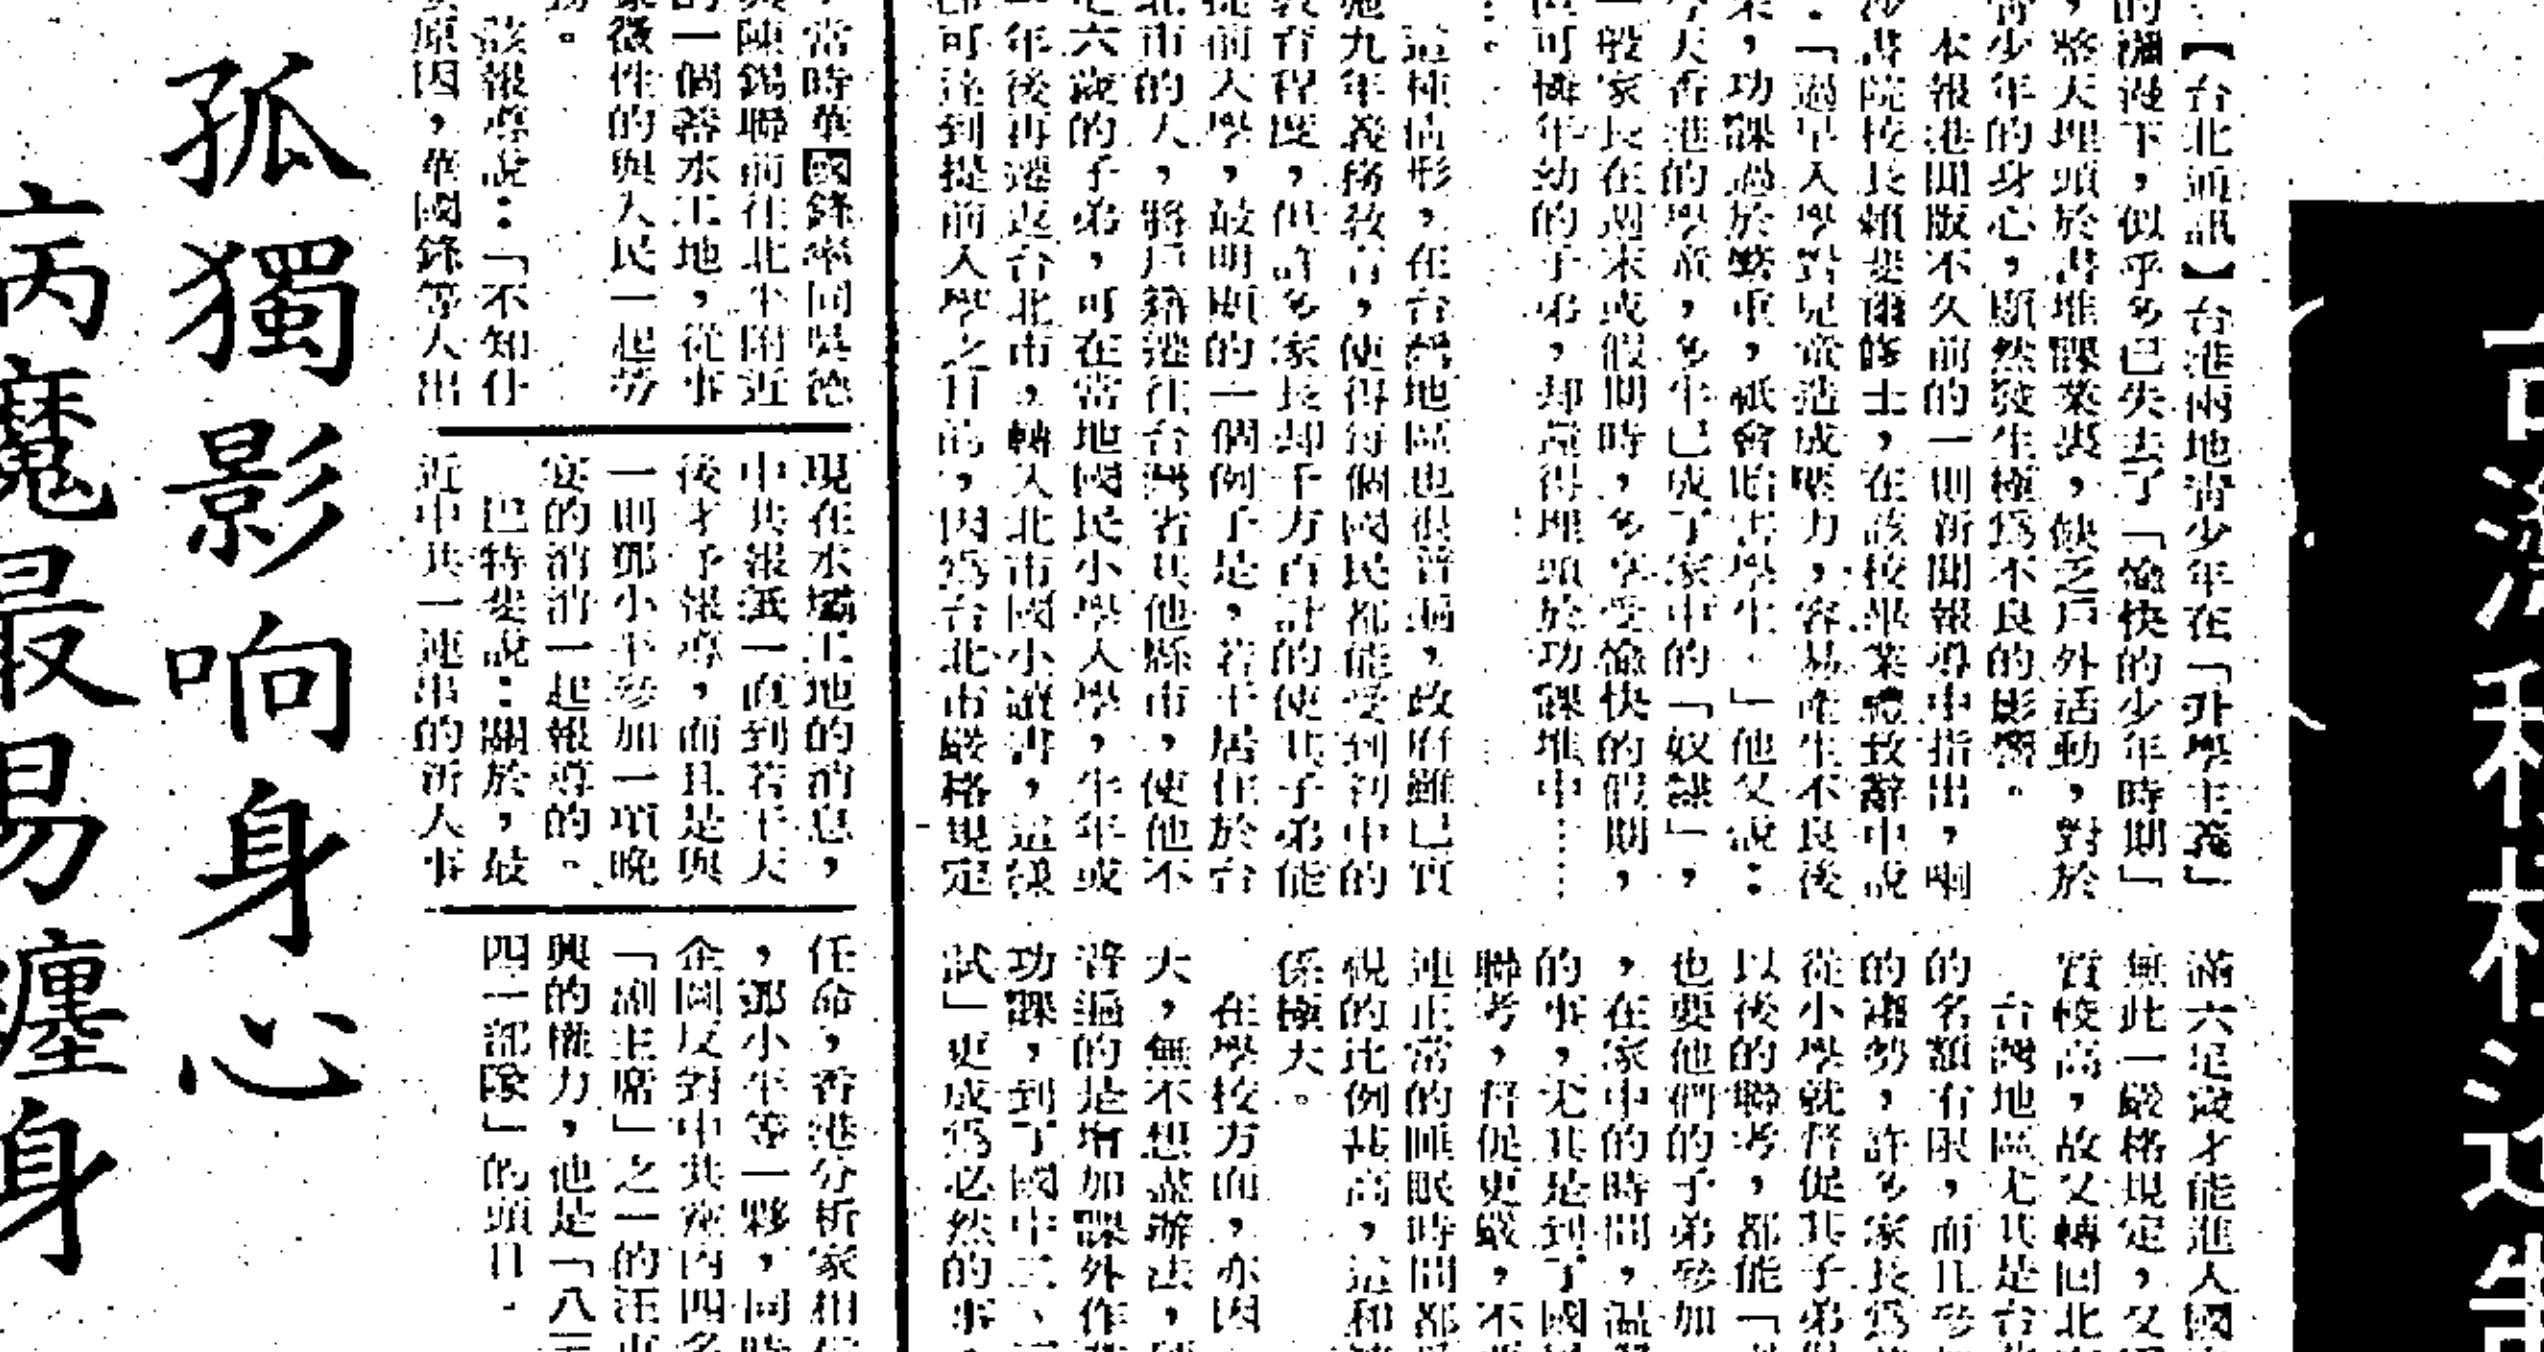 【台北通訊】台港兩地青少年在「升學主義」
的瀰漫下，似乎多已失去了「愉快的少年時期」
，整天埋頭於書堆課業裏，缺乏戶外活動，對於
青少年的身心，顯然發生極爲不良的影響。
本報港聞版不久前的一則新聞報導中指出，喇
沙書院校長賴斐爾修士，在該校畢業禮致辭中說
：「過早入學對兒童造成壓力，容易產生不良後
果，功課過於繁重，祇會貽害學生。」他又說：
今天香港的學童，多半已成了家中的「奴隸」，
一般家長在週末或假期時，多享受愉快的假期，
可憐年幼的子弟，却還得埋頭於功課堆中……
這種情形，在台灣地區也很普遍，政府雖已實
施九年義務教育，使得每個國民都能受到初中的
教育程度，但許多家長却千方百計的使其子弟能
提前入學，最明顯的一個例子是，若干居住於台
北市的人，將戶籍遷往台灣省其他縣市，使他不
足六歲的子弟，可在當地國民小學入學，半年或
一年後再遷返台北市，轉入北市國小讀書，這樣
即可達到提前入學之目的，因爲台北市嚴格規定
滿六足歲才能進入國
無此一嚴格規定，又
質較高，故又轉回北
台灣地區尤其是台
的名額有限，而且參
的趨勢，許多家長爲
從小學就督促其子弟
以後的聯考，都能「
也要他們的子弟參加
，在家中的時間，溫
的事，尤其是到了國
聯考，督促更嚴，不
連正常的睡眠時間都
視的比例甚高，這和
係極大。
在學校方面，亦因
大，無不想盡辦法，
普遍的是增加課外作
功課，到了國中三、
試」更成爲必然的事
當時華國鋒率同吳德
陳錫聯前往北平附近
的一個蓄水工地，從事
象徵性的與人民一起勞
動。
該報導說：「不知什
麼原因，華國鋒等人出
現在水壩工地的消息，
中共報紙一直到若干天
後才予報導，而且是與
一則鄧小平參加一項晚
宴的消消一起報導的。
巴特斐說：關於，最
近中共一連串的新人事
任命，香港分析家相信
，鄧小平等一夥，同時
企圖反對中共黨內四名
「副主席」之一的汪東
興的權力，他是「八三
四一部隊」的頭目。
孤獨影响身心
病魔最易纏身